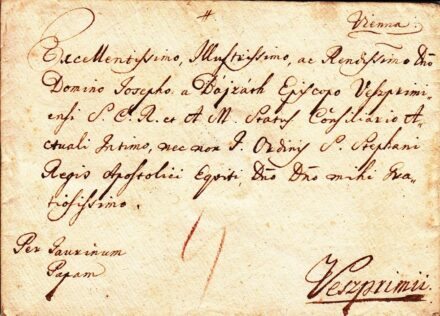 Vienna.
Excellentissimo, Illustrissimo, ac Rendissimo Dño
Domino Josepho a Bajzáth Episcopo Veszprimi=
ensi S. C. R. et A. M. Status Consiliario A=
ctuali Intimo, nec non I. Ordinis S. Stephani
Regis Apostolici Equiti, Dño Dño mihi Gra=
tiosissimo.
Per Jaurinum
Papam
Veszprimii.